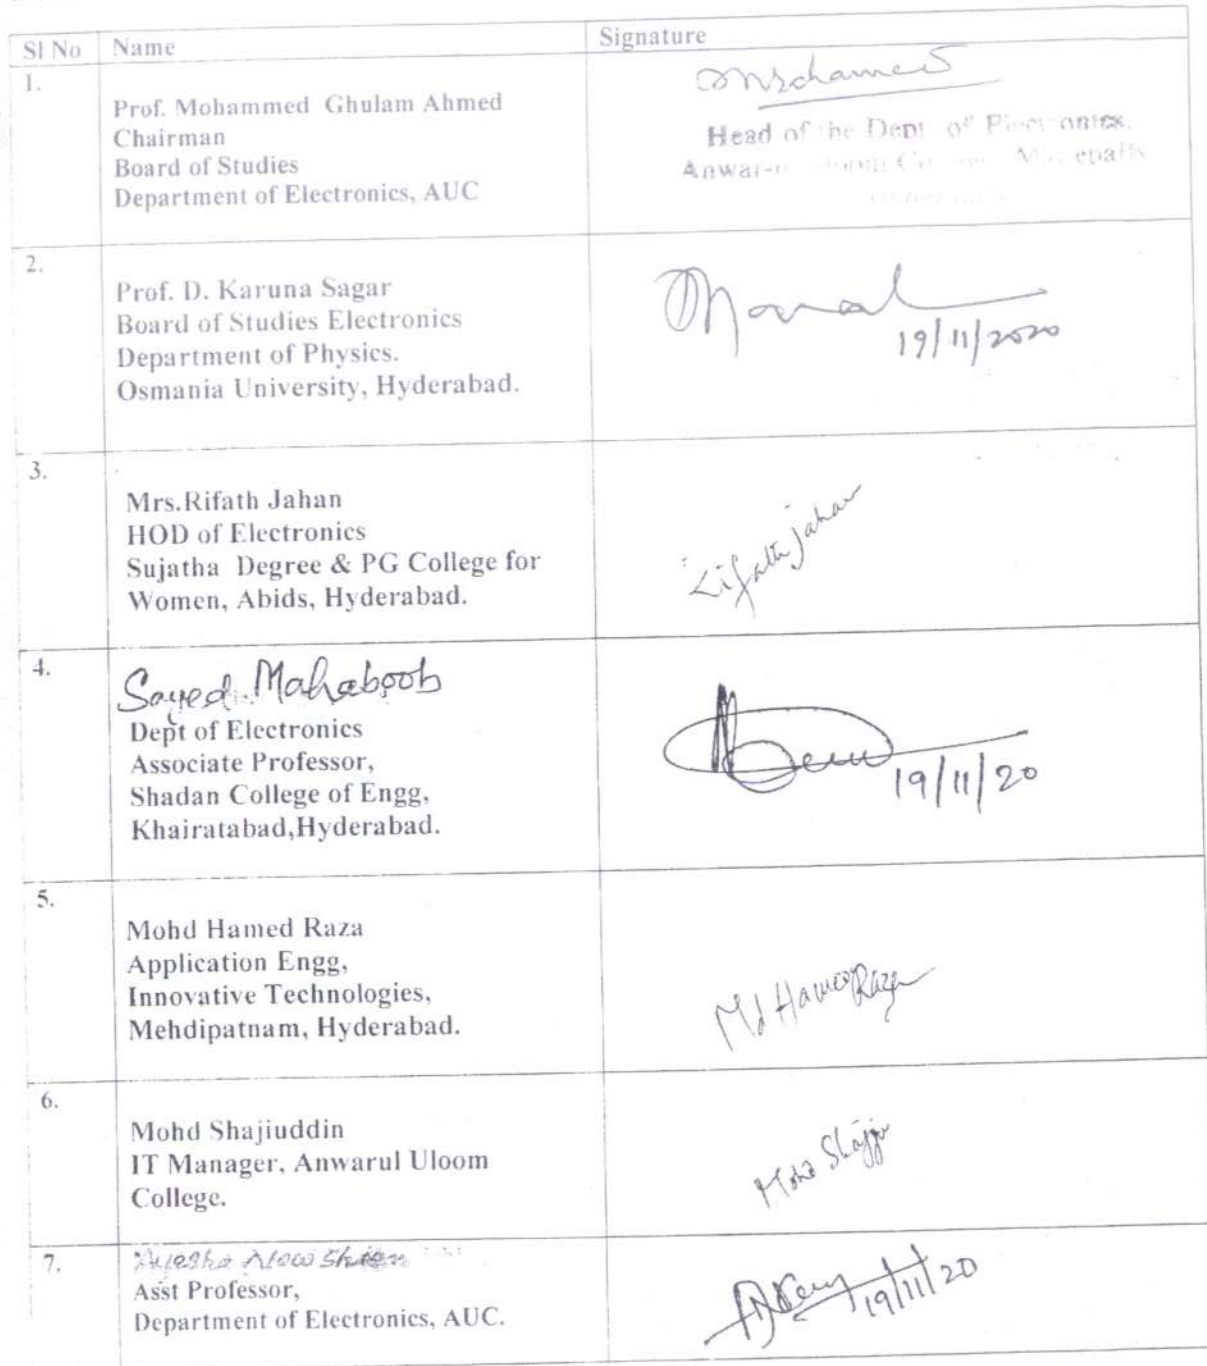 Sl No Name Signature
1.
Prof. Mohammed Ghulam Ahmed
Chairman
Board of Studies
Department of Electronics, AUC
Head of the Dept. of Electronics,
2.
Prof. D. Karuna Sagar
Board of Studies Electronics
Department of Physics.
Osmania University, Hyderabad.
19/11/2020
3.
Mrs.Rifath Jahan
HOD of Electronics
Sujatha Degree & PG College for
Women, Abids, Hyderabad.
Rifath Jahan
4.
Sayed. Mahaboob
Dept of Electronics
Associate Professor,
Shadan College of Engg,
Khairatabad,Hyderabad.
19/11/20
5.
Mohd Hamed Raza
Application Engg,
Innovative Technologies,
Mehdipatnam, Hyderabad.
Md Hamed Raza
6.
Mohd Shajiuddin
IT Manager, Anwarul Uloom
College.
7.
Asst Professor,
Department of Electronics, AUC.
19/11/20